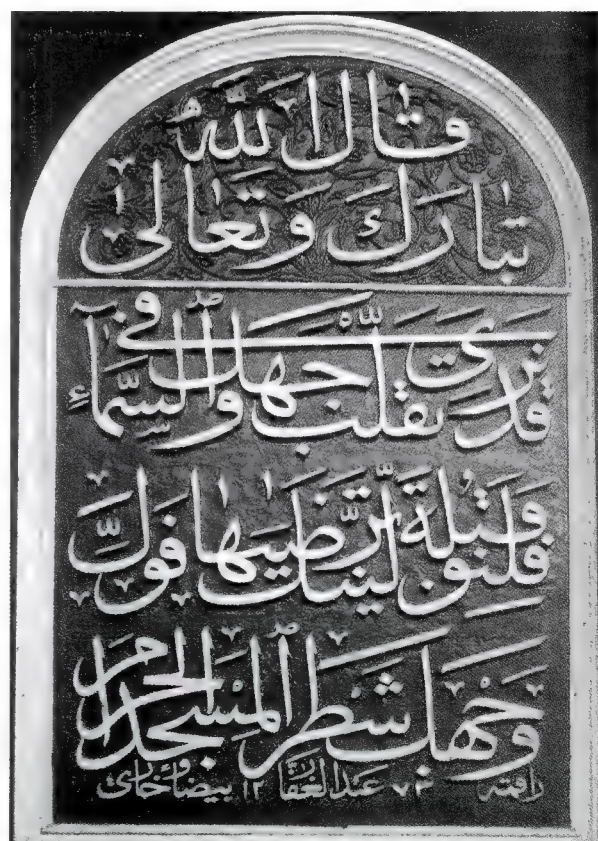 قال اللهُ
تبارك وتعالى
قد نرى تقلّب وجهك في السّمآءِ
فلنولينّك قبلة ترضيٰها فولّ
وجهك شطر المسجد الحرام
عبدالغفار